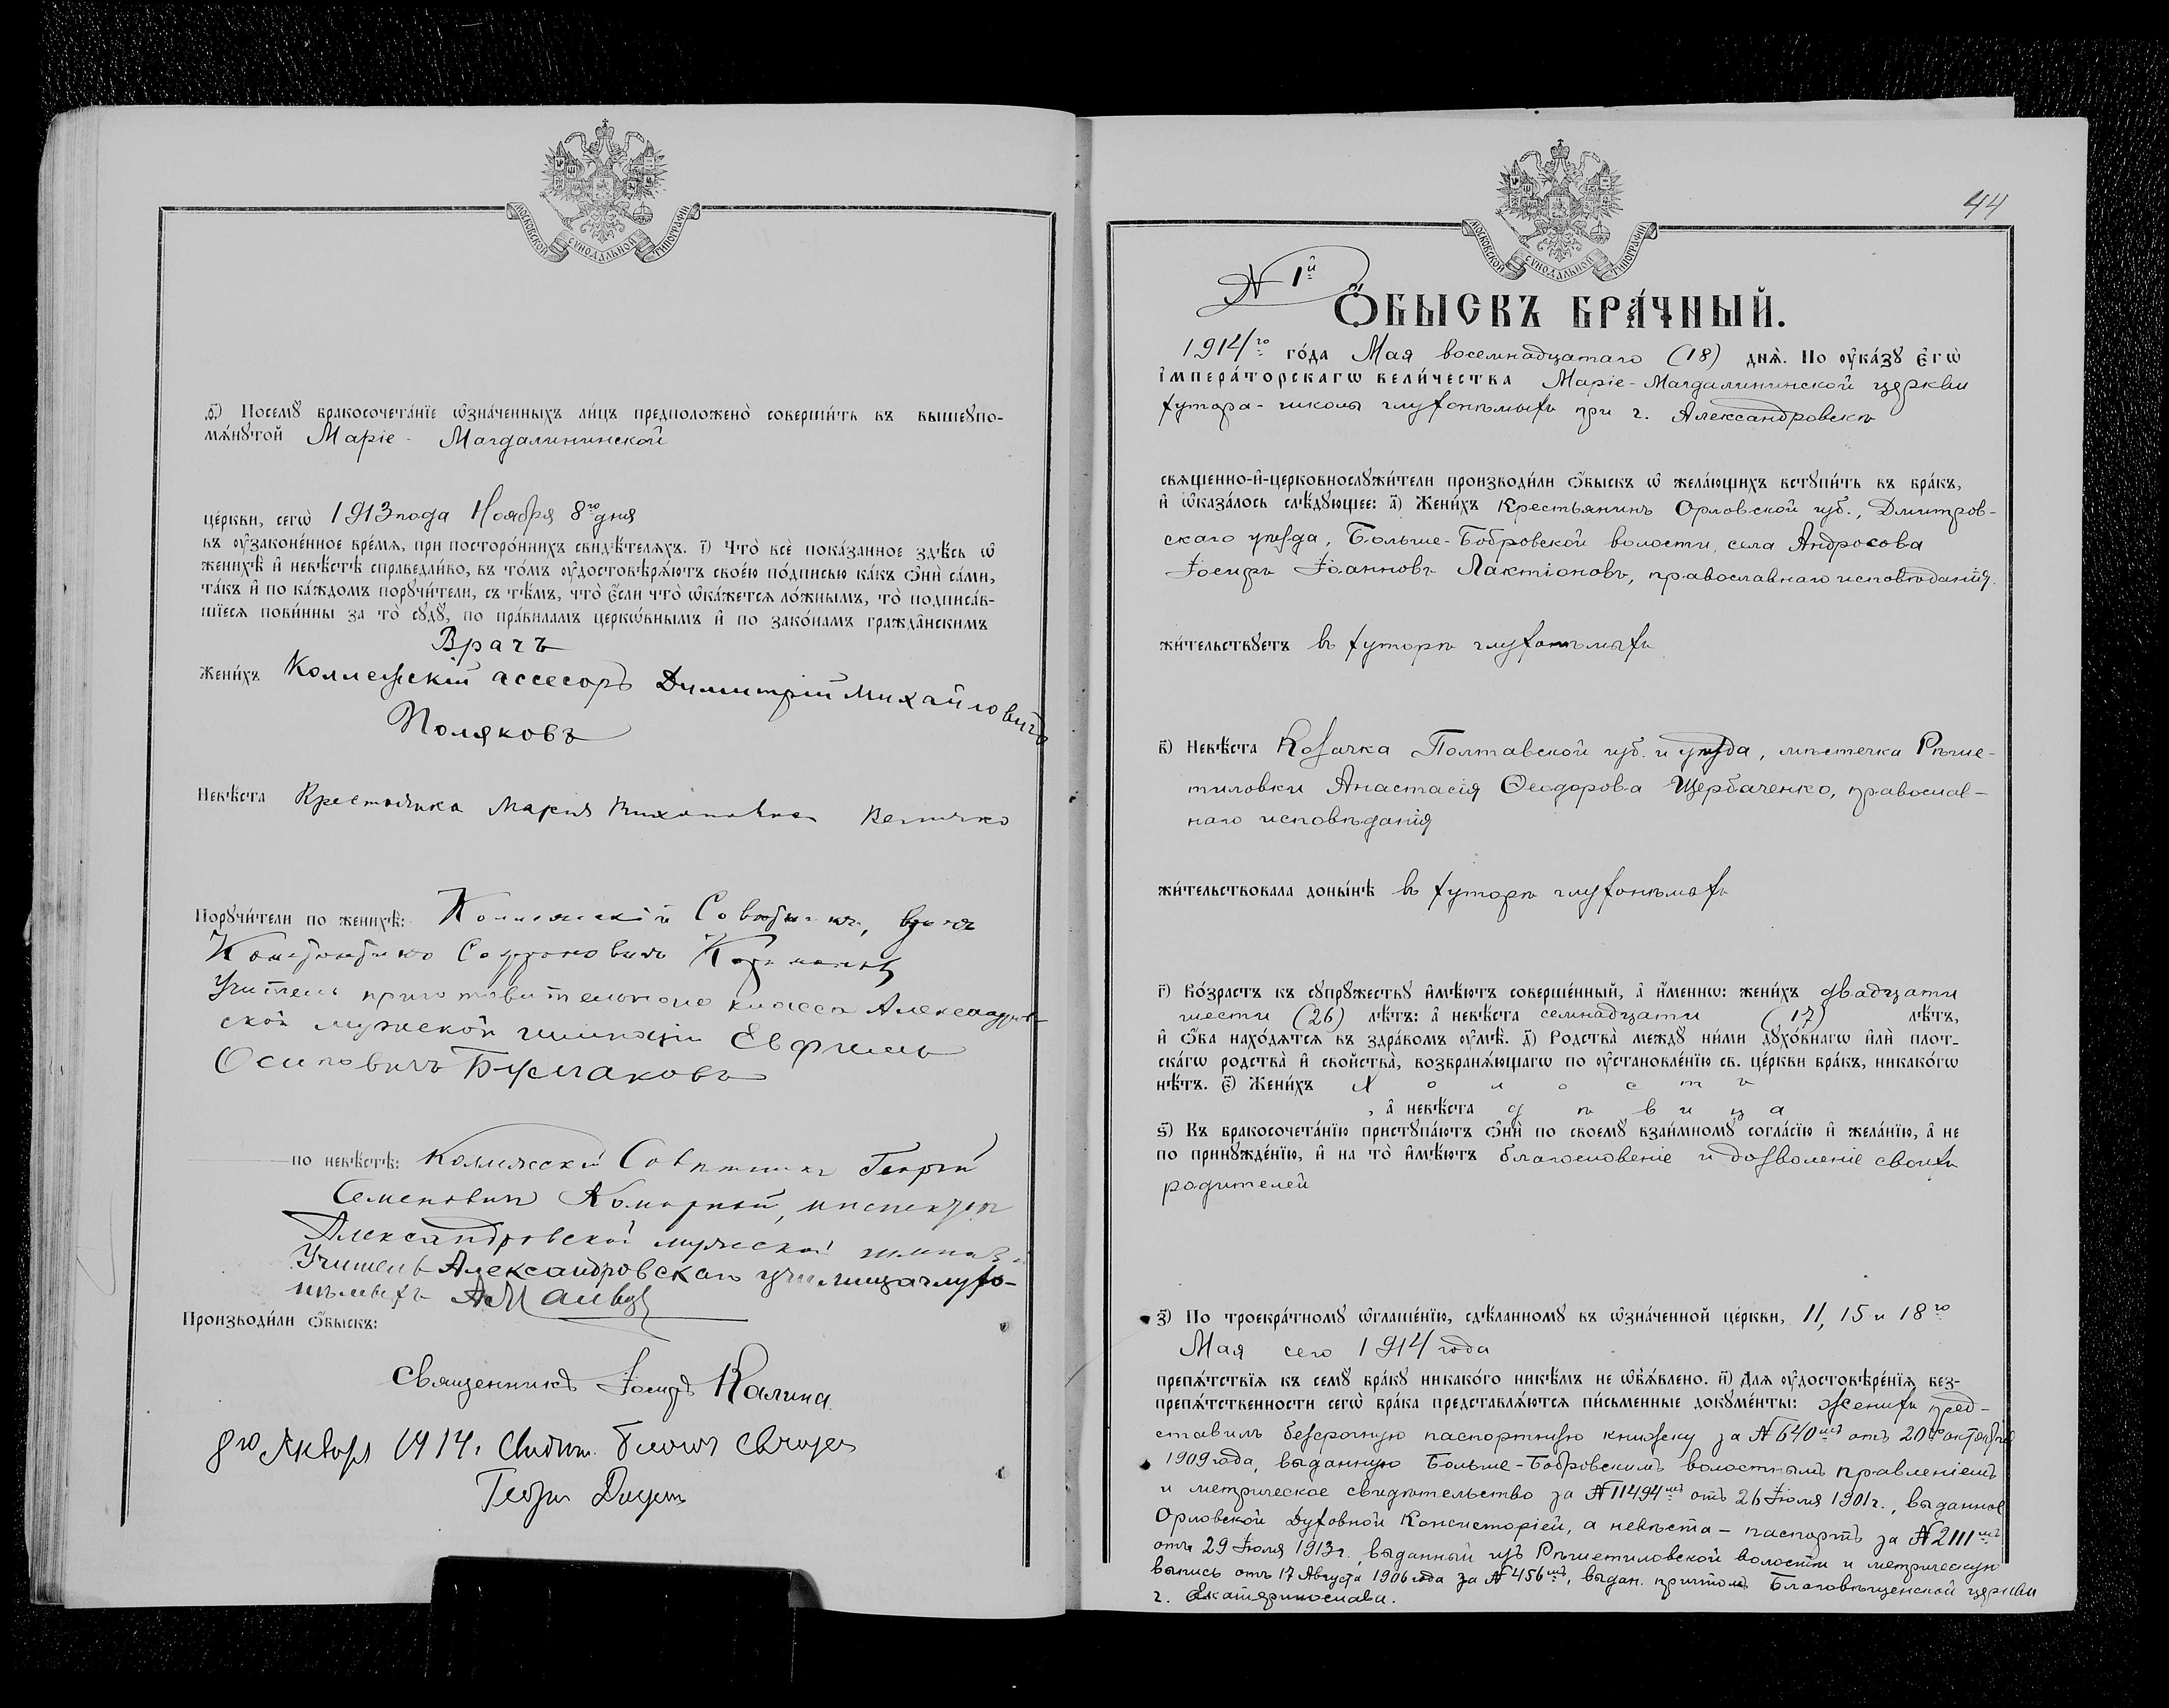 МОСКОВСКОЙ СУНОДАЛЬНОЙ ТИПОГРАФІИ
д҃) Посемꙋ̀ бракосочета́нїе ѡ҆зна́ченныхъ ли́цъ предположено̀ соверши́ть въ вышеꙋпо-
мѧ́нꙋтой Маріе-Магдалининской
це́ркви, сегѡ̀ 1913 года Ноября 8го дня
въ ᲂу҆законе́нное вре́мѧ, при посторо́ннихъ свидѣ́телѧхъ. і҃) Что̀ всѐ пока́занное здѣ́сь ѡ҆
женихѣ̀ и҆ невѣ́стѣ справедли́во, въ то́мъ ᲂу҆достовѣрѧ́ютъ свое́ю по́дписью ка́къ ѻ҆нѝ са́ми,
та́къ и҆ по ка́ждомъ порꙋчи́тели, съ тѣ́мъ, что̀ є҆́сли что̀ ѡ҆ка́жетсѧ ло́жнымъ, то̀ подписа́в-
шїесѧ пови́нны за то̀ сꙋдꙋ̀, по пра́виламъ церко́внымъ и҆ по зако́намъ гражда́нскимъ
Врачъ
Жени́хъ Коллежскій ассесоръ Димитрій Михайловичъ
Поляковъ
Невѣ́ста Крестьянка Мария Тихоновна Величко
Порꙋчи́тели по женихѣ̀: Коллежскій Совѣтникъ, врачъ
Константинъ Софроновичъ
Учитель приготовительного класса Александров-
ской мужской гимназіи Евфимъ
Осиповичъ Бурлаковъ
по невѣ́стѣ: Коллежскій Совѣтникъ Георгій
Семеновичъ Комарный, инспекторъ
Александровской мужской гимназіи
Учитель Александровскаго училища глухо-
нѣмыхъ
Производи́ли ѻ҆́быскъ:
Священникъ Іосифъ Калина
8го Января 1914 г.
Георгій
44
МОСКОВСКОЙ СУНОДАЛЬНОЙ ТИПОГРАФІИ
№ 1й
Ѻ҆́БЫСКЪ БРА́ЧНЫЙ.
1914го го́да Мая восемнадцатаго (18) днѧ̀. По ᲂу҆ка́зꙋ Є҆гѡ̀
і҆мпера́торскагѡ вели́чества Маріе-Магдалининской церкви
хутора-школы глухонѣмыхъ при г. Александровскѣ
свѧще́нно-и҆-церковнослꙋжи́тели производи́ли ѻ҆́быскъ ѡ҆ жела́ющихъ встꙋпи́ть въ бра́къ,
и҆ ѡ҆каза́лось слѣ́дꙋющее: а҃) Жени́хъ Крестьянинъ Орловской губ., Дмитров-
скаго уѣзда, Больше-Бобровской волости, села Андросова
Іосифъ Іоанновъ Лактіоновъ, православнаго исповѣданія.
жи́тельствꙋетъ въ хуторѣ глухонѣмыхъ
в҃) Невѣ́ста Козачка Полтавской губ. и уѣзда, мѣстечка Рѣше-
тиловки Анастасія Ѳеодорова Щербаченко, православ-
наго исповѣданія
жи́тельствовала доны́нѣ въ хуторѣ глухонѣмыхъ
г҃) Во́зрастъ къ сꙋпрꙋ́жествꙋ и҆мѣ́ютъ соверше́нный, а҆ и҆́менно: жени́хъ двадцати
шести (26) лѣ́тъ: а҆ невѣ́ста семнадцати (17) лѣ́тъ,
и҆ ѻ҆́ба нахо́дѧтсѧ въ здра́вомъ ᲂу҆мѣ̀. д҃) Родства̀ междꙋ̀ ни́ми дꙋхо́внагѡ и҆лѝ плот-
ска́гѡ родства̀ и҆ сво́йства, возбранѧ́ющагѡ по ᲂу҆становле́нїю св. це́ркви бра́къ, никако́гѡ
нѣ́тъ. є҃) Жени́хъ холостъ
, а҆ невѣ́ста дѣвица
ѕ҃) Къ бракосочета́нїю пристꙋпа́ютъ ѻ҆нѝ по своемꙋ̀ взаи́мномꙋ согла́сїю и҆ жела́нїю, а҆ не
по принꙋжде́нїю, и҆ на то̀ и҆мѣ́ютъ благословеніе и дозволеніе своихъ
родителей
з҃) По троекра́тномꙋ ѡ҆глаше́нїю, сдѣ́ланномꙋ въ ѡ҆зна́ченной це́ркви, 11, 15 и 18го
Мая сего 1914 года
препѧ́тствїѧ къ семꙋ̀ бра́кꙋ никако́го никѣ́мъ не ѡ҆б̾ѧ́влено. и҃) Длѧ ᲂу҆достовѣре́нїѧ без-
препѧ́тственности сегѡ̀ бра́ка представлѧ́ютсѧ пи́сьменные докꙋме́нты: женихъ пред-
ставилъ безсрочную паспортную книжку за № 640мъ отъ 20го октября
1909 года, выданную Больше-Бобровскимъ волостнымъ правленіемъ
и метрическое свидѣтельство за № 11494мъ отъ 26 Іюля 1901 г., выданное
Орловской Духовной Консисторіей, а невѣста – паспортъ за № 2111мъ
отъ 29 Іюля 1913 г. выданный изъ Рѣшетиловской волости и метрическую
выпись отъ 17 Августа 1906 года за № 456мъ, выдан. причтомъ Благовѣщенской церкви
г. Екатеринослава.